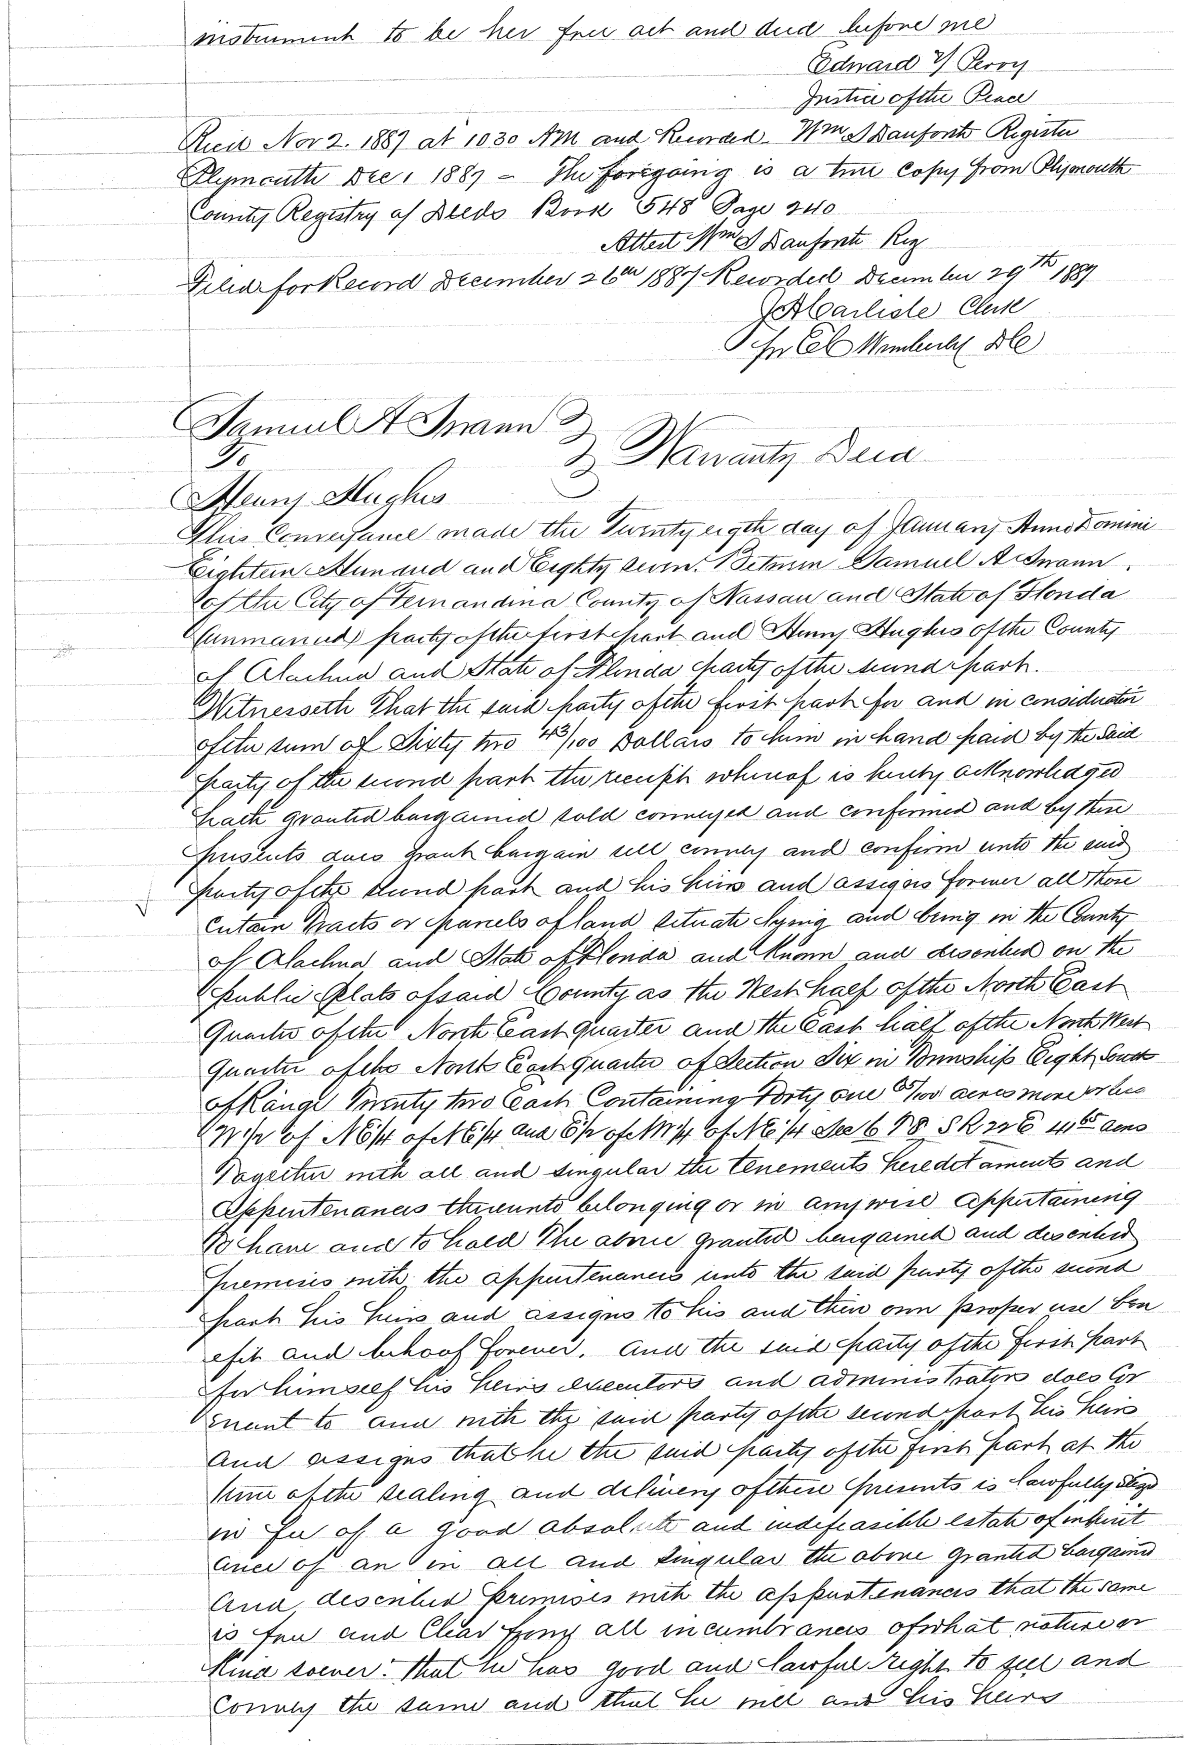 instrument to be her free act and deed before me
Edward Y Perry
Justice of the Peace
Recd Nov 2. 1887 at 10 30 AM and Recorded - Wm S Danforth Register
Plymouth Dec 1 1887 - The foregoing is a true copy from Plymouth
County Registry of Deeds Book 548 Page 240
Attest Wm S Danforth Reg
Filed for Record December 26th 1887 Recorded December 29th 1887
J A Carlisle Clerk
Wimberly DC
Samuel A Swann
To
Warranty Deed
Henry Hughes
This Conveyance made the Twenty eigth day of January Anno Domini
Eighteen Hundred and Eighty seven. Between Samuel A Swann
of the City of Fernandina County of Nassau and State of Florida
(unmarried) party of the first part and Henry Hughes of the County
of Alachua and State of Florida party of the second part.
Witnesseth That the said party of the first part for and in consideration
of the sum of Sixty two 43/100 Dollars to him in hand paid by the said
party of the second part the receipt whereof is hereby acknowledged
hath granted bargained sold conveyed and confirmed and by these
presents does grant bargain sell convey and confirm unto the said
party of the second part and his heirs and assigns forever all those
certain tracts or parcels of land situate lying and being in the County
of Alachua and State of Florida and known and described on the
public plats of said County as the West half of the North East
Quarter of the North East quarter and the East half of the North West
quarter of the North East quarter of Section Six in Township Eight South
of Range Twenty two East Containing Forty one 65/100 acres more or less
W 1/2 of NE 1/4 of NE 1/4 and E 1/2 of NW 1/4 of NE 1/4 Sec 6 T 8 S R 22 E 41 65 acres
Together with all and singular the tenements hereditaments and
appurtenances thereunto belonging or in anywise appertaining
To have and to hold The above granted bargained and described
premises with the appurtenances unto the said party of the second
part his heirs and assigns to his and their own proper use ben
efit and behoof forever. And the said party of the first part
for himself his heirs executors and administrators does Cov
enant to and with the said party of the second part his heirs
and assigns that he the said party of the first part at the
time of the sealing and delivery of these presents is lawfully seized
in fee of a good absolute and indefeasible estate of inherit
ance of an in all and singular the above granted bargained
and described premises with the appurtenances that the same
is free and Clear from all incumbrances of what nature or
kind soever. That he has good and lawful right to sell and
convey the same and that he will and his heirs